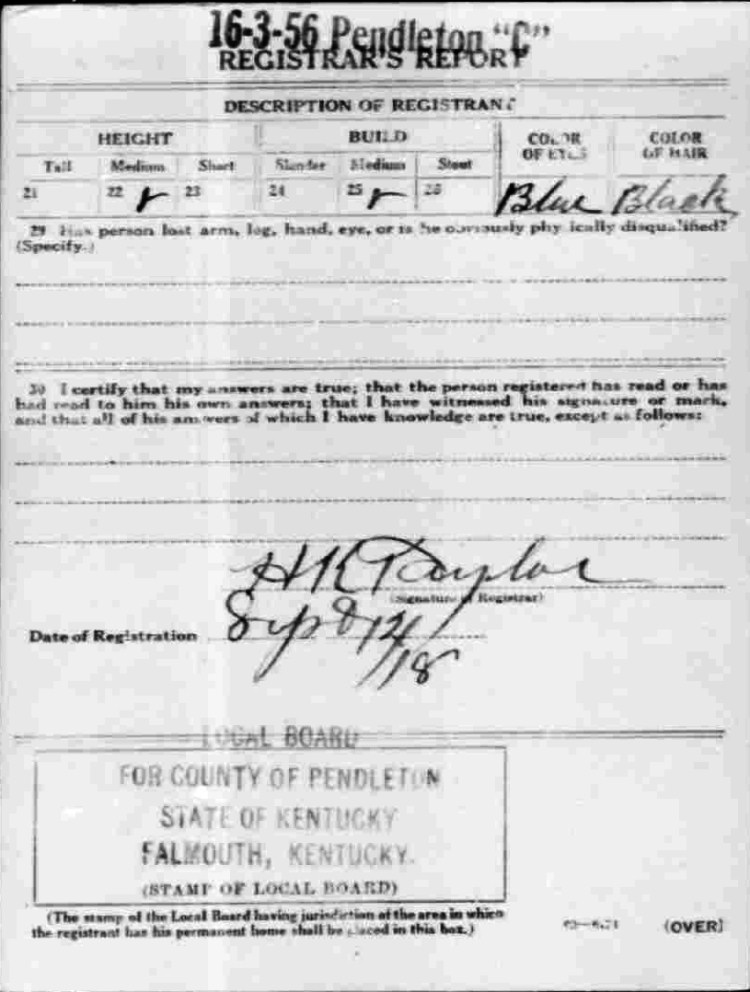 16-3-56 Pendleton "C"
REGISTRAR'S REPORT
DESCRIPTION OF REGISTRANT
HEIGHT BUILD COLOR OF EYES COLOR OF HAIR
Tall Medium Short Slender Medium Stout
21 22 23 24 25 26 Blue Black
29 Has person lost arm, leg, hand, eye, or is he obviously physically disqualified?
(Specify.)
30 I certify that my answers are true; that the person registered has read or has
had read to him his own answers; that I have witnessed his signature or mark,
and that all of his answers of which I have knowledge are true, except as follows:
H K Taylor
(Signature of Registrar)
Date of Registration Sept 12/18
LOCAL BOARD
FOR COUNTY OF PENDLETON
STATE OF KENTUCKY
FALMOUTH, KENTUCKY.
(STAMP OF LOCAL BOARD)
(The stamp of the Local Board having jurisdiction of the area in which
the registrant has his permanent home shall be placed in this box.)
(OVER)